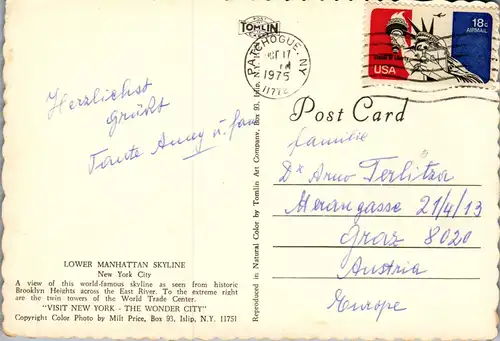 Herzlichst
grüßt
Tante Anny u.
LOWER MANHATTAN SKYLINE
New York City
A view of this world-famous skyline as seen from historic
Brooklyn Heights across the East River. To the extreme right
are the twin towers of the World Trade Center.
"VISIT NEW YORK - THE WONDER CITY"
Copyright Color Photo by Milt Price, Box 93, Islip, N.Y. 11751
TOMLIN
Reproduced in Natural Color by Tomlin Art Company, Box 93, Islip, N.Y.
PATCHOGUE, NY
OCT 17
1975
18c
AIRMAIL
USA
Post Card
Familie
Dr Arno Terlitza
Merangasse 21/4/13
Graz 8020
Austria
Europe